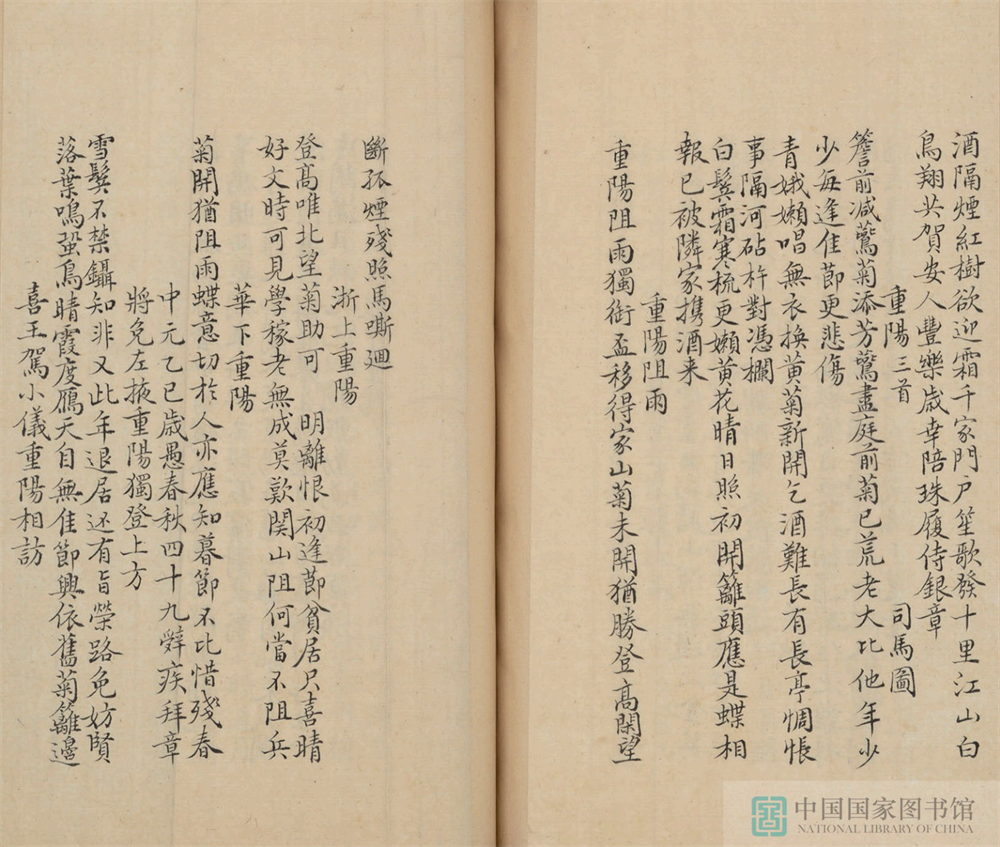 酒隔煙紅樹欲迎霜千家門戶笙歌發十里江山白
鳥翔共賀安人豐樂歲幸陪珠履侍銀章
重陽三首 司馬圖
簷前減鷰菊添芳鷰盡庭前菊已荒老大比他年少
少每逢佳節更悲傷
青娥嬾唱無衣換黃菊新開乞酒難長有長亭惆悵
事隔河砧杵對憑欄
白鬢霜寒梳更嬾黃花晴日照初開籬頭應是蝶相
報已被隣家携酒来
重陽阻雨
重陽阻雨獨銜盃移得家山菊未開猶勝登高閑望
斷孤煙殘照馬嘶迴
浙上重陽
登高唯北望菊助可 明離恨初逢節貧居只喜晴
好文時可見學稼老無成莫歎関山阻何當不阻兵
華下重陽
菊開猶阻雨蝶意切於人亦應知暮節不比惜殘春
中元乙巳歲愚春秋四十九辤疾拜章
將免左掖重陽獨登上方
雪鬢不禁鑷知非又此年退居还有旨榮路免妨賢
落葉鳴蛩鳥晴霞度鴈天自無佳節興依舊菊籬邊
喜王駕小儀重陽相訪
中国国家图书馆
NATIONAL LIBRARY OF CHINA